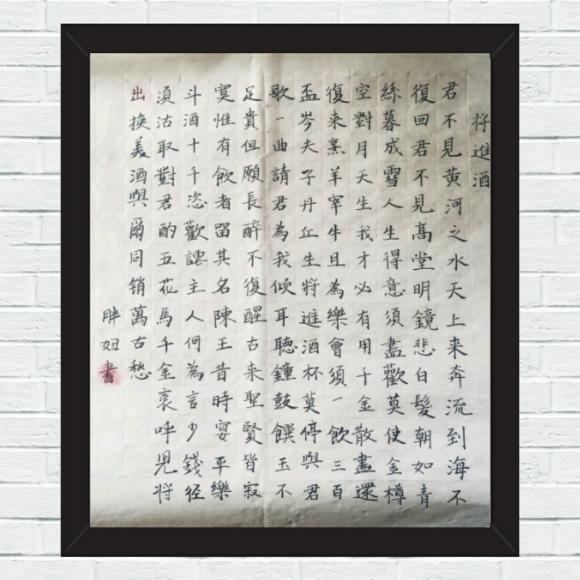 将進酒
君不見黄河之水天上来奔流到海不
復回君不見髙堂明鏡悲白髮朝如青
絲暮成雪人生得意須盡歡莫使金樽
空對月天生我才必有用千金散盡還
復来烹羊宰牛且為樂會須一飲三百
盃岑夫子丹丘生將進酒杯莫停與君
歌一曲請君為我倾耳聽鐘鼓饌玉不
足貴但願長醉不復醒古来聖賢皆寂
寞惟有飲者留其名陳王昔時宴平樂
斗酒十千恣歡謔主人何為言少錢径
須沽取對君酌五花馬千金裘呼児将
出换美酒與爾同销萬古愁
胖妞書